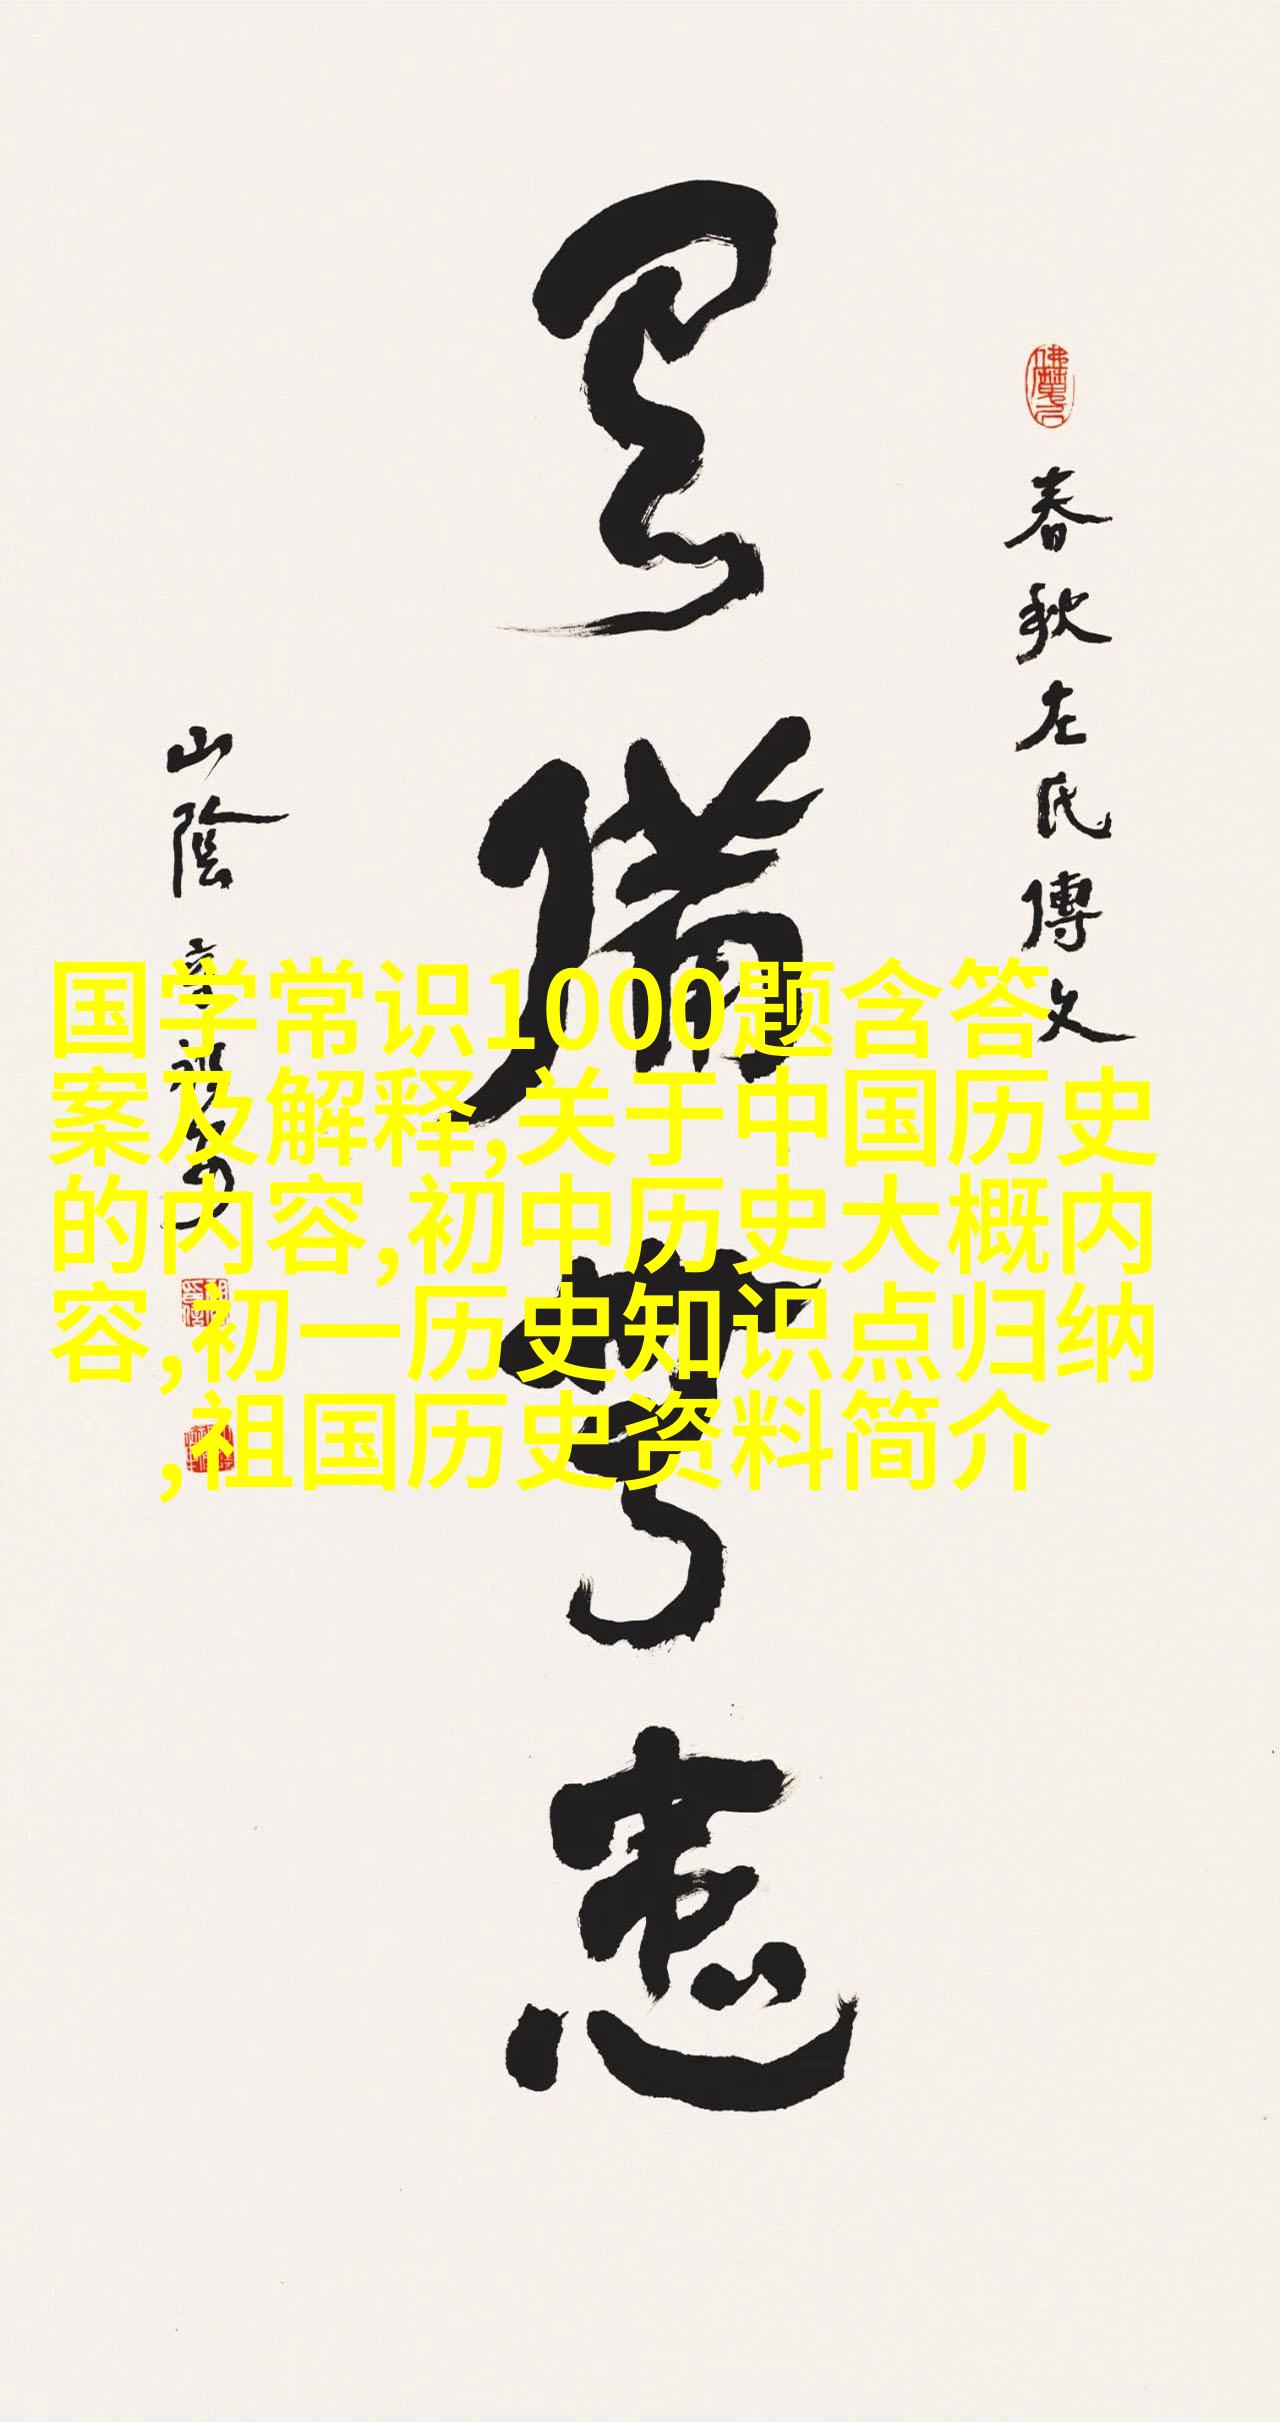 春秋左氏傳文
有備無患
山陰
国学常识1000题含答
案及解释,关于中国历史
的内容,初中历史大概内
容,初一历史知识点归纳
,祖国历史资料简介